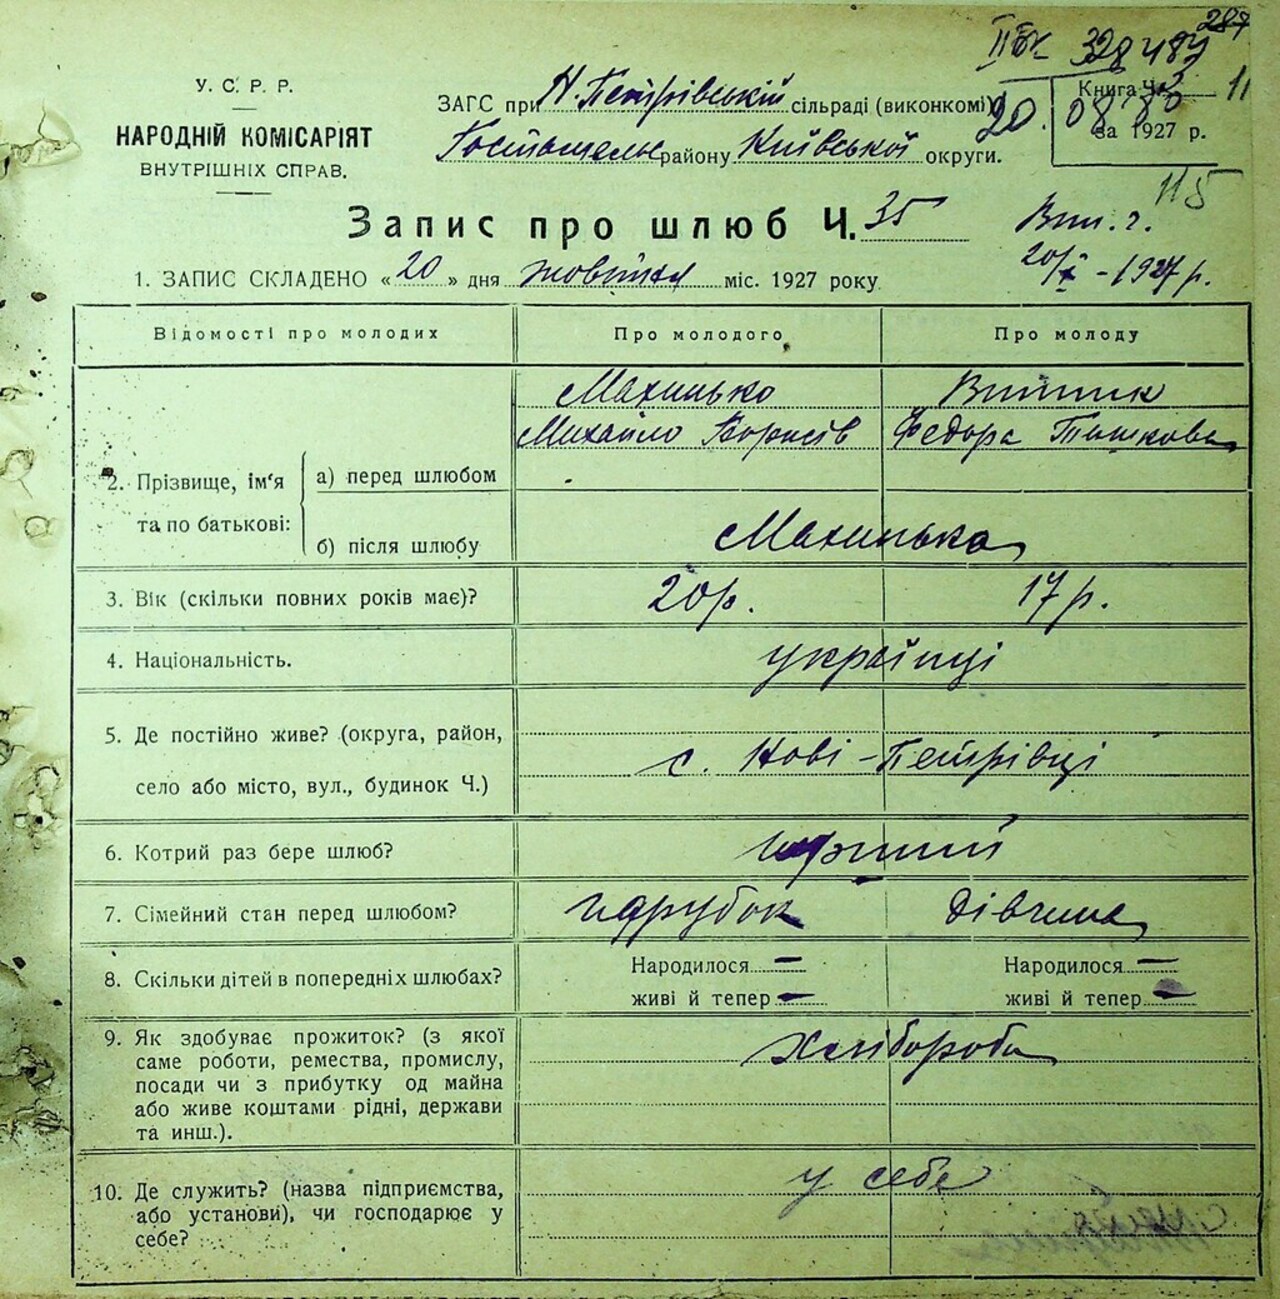 287
ІІБК 328487
У. С. Р. Р.
НАРОДНІЙ КОМІСАРІЯТ
ВНУТРІШНІХ СПРАВ.
ЗАГС при Н. Петрівській сільраді (виконкомі)
Гостомельс району Київської округи.
Книга Ч. 3 11
за 1927 р.
20. 08 83
115
Запис про шлюб Ч. 35
Вип. г.
20/X - 1927 р.
1. ЗАПИС СКЛАДЕНО «20» дня жовтня міс. 1927 року
Відомості про молодих Про молодого Про молоду
Махинько Витпик
Михайло Борисів Федора Тишкова
2. Прізвище, ім‘я та по батькові:
а) перед шлюбом
б) після шлюбу Махинька
3. Вік (скільки повних років має)? 20 р. 17 р.
4. Національність. українці
5. Де постійно живе? (округа, район,
село або місто, вул., будинок Ч.) с. Нові-Петрівці
6. Котрий раз бере шлюб? перший
7. Сімейний стан перед шлюбом? парубок дівчина
8. Скільки дітей в попередніх шлюбах? Народилося — Народилося —
живі й тепер — живі й тепер —
9. Як здобуває прожиток? (з якої хлібороби
саме роботи, ремества, промислу,
посади чи з прибутку од майна
або живе коштами рідні, держави
та инш.).
10. Де служить? (назва підприємства, у себе
або установи), чи господарює у
себе?